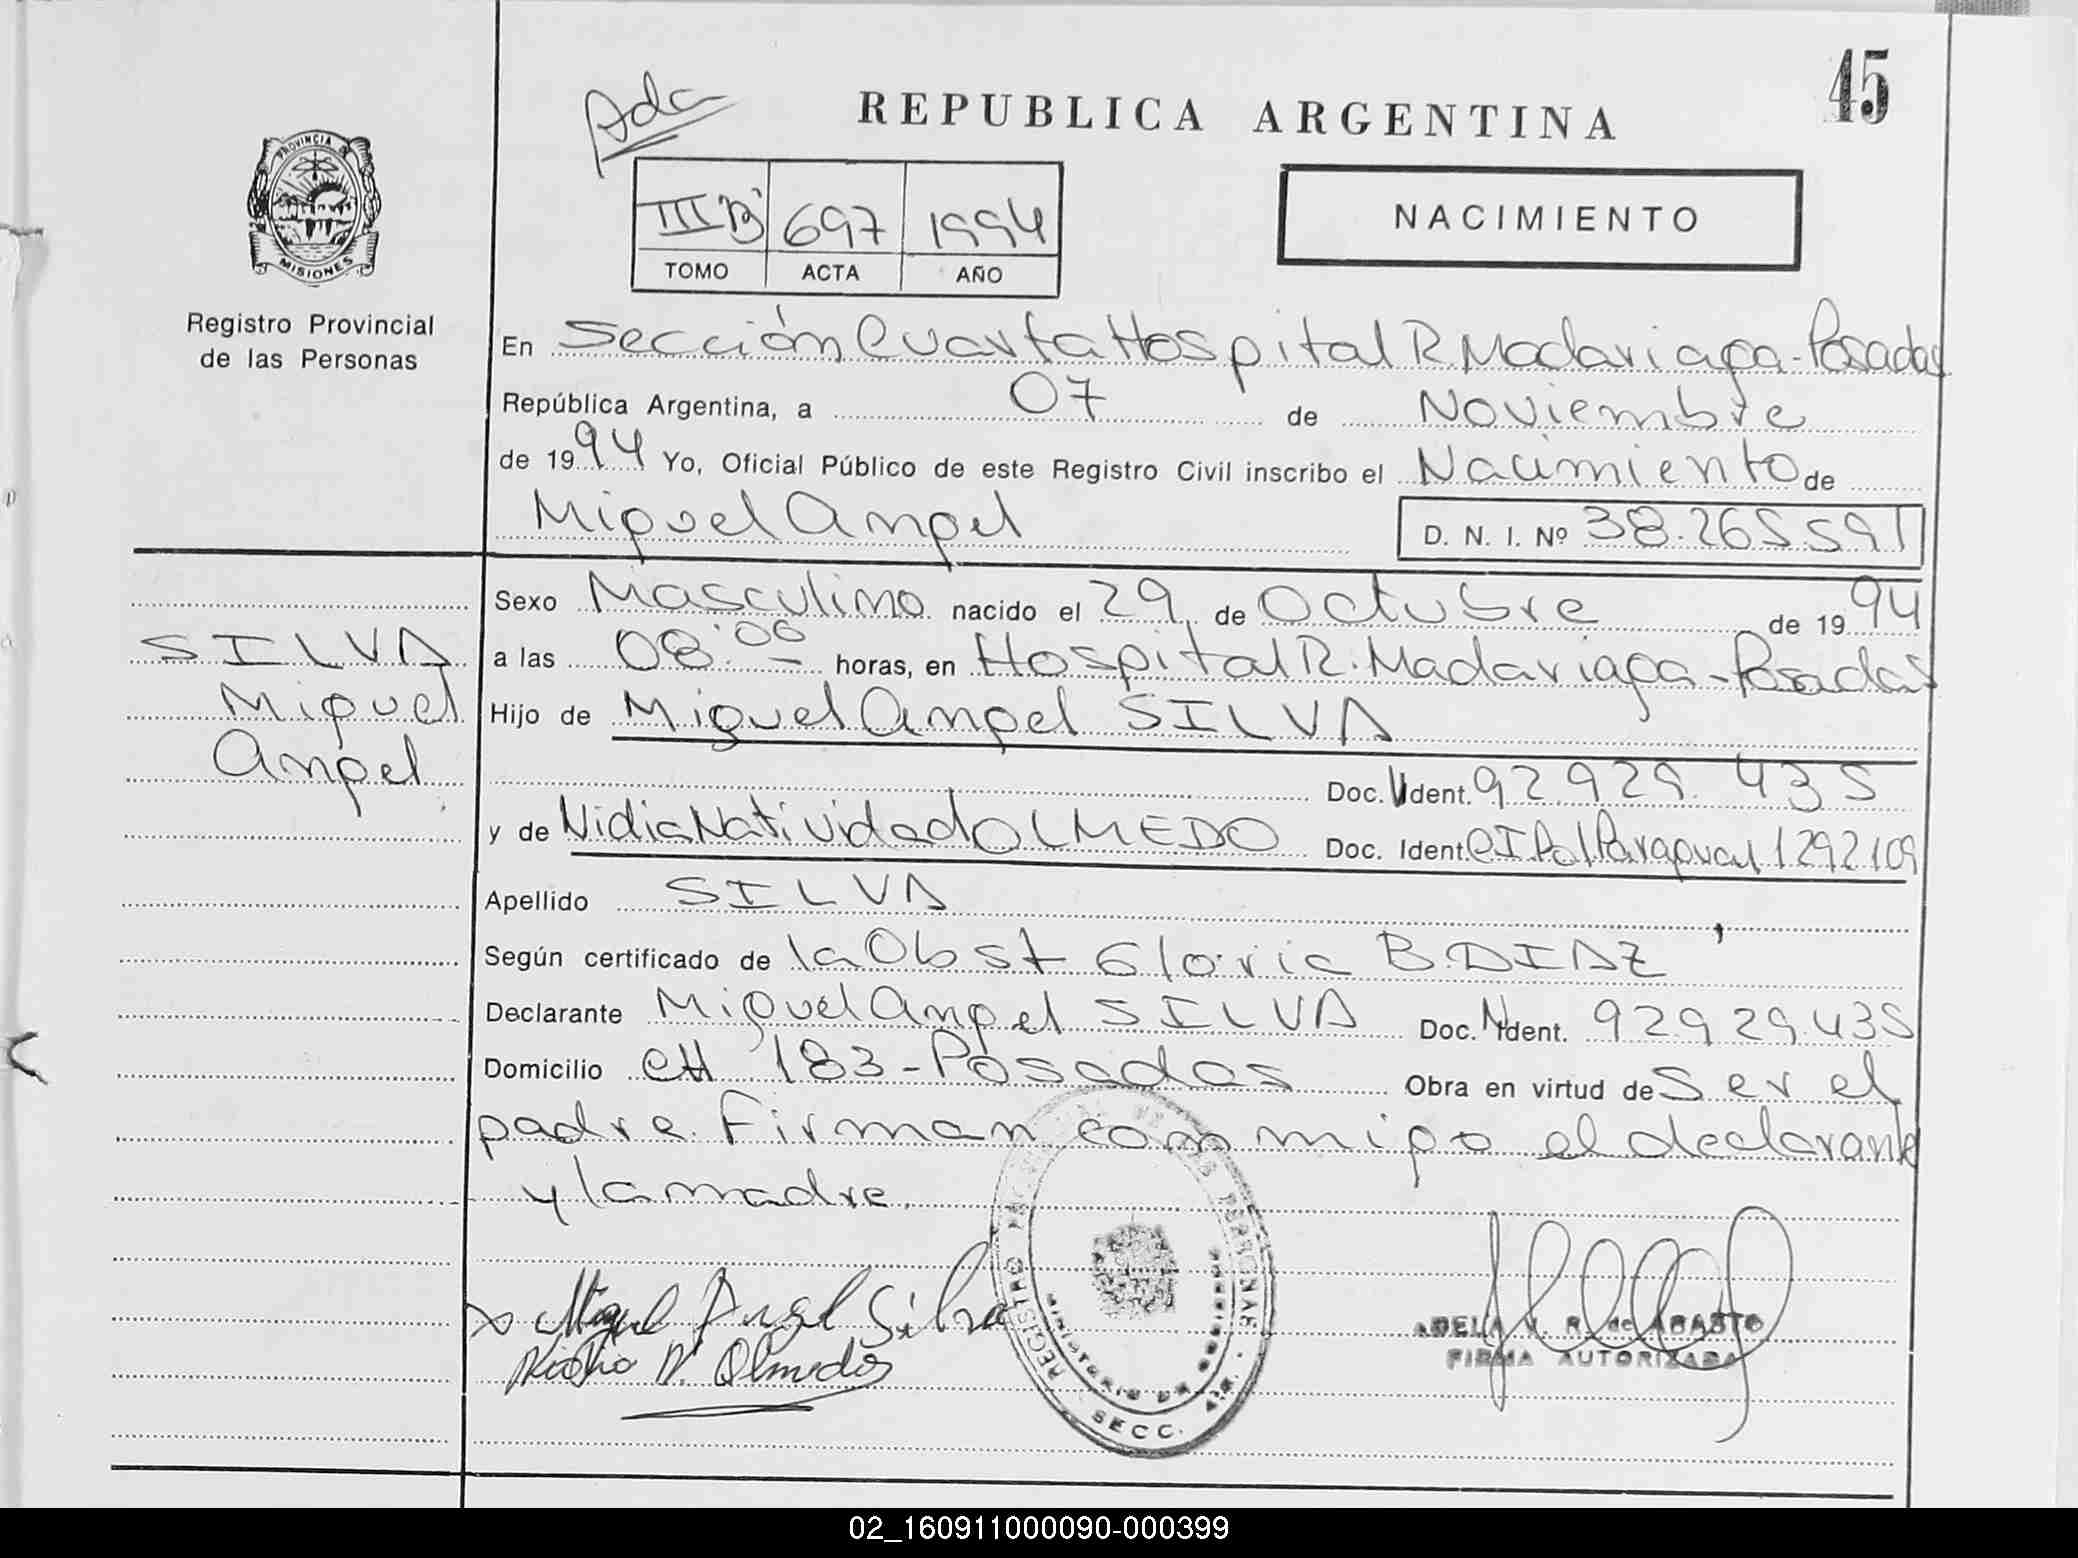 45
Ada
REPUBLICA ARGENTINA
PROVINCIA DE
MISIONES
Registro Provincial
de las Personas
III B' 697 1994
TOMO ACTA AÑO
NACIMIENTO
En Sección Cuarta Hospital R. Madariaga - Posadas
República Argentina, a 07 de Noviembre
de 1994 Yo, Oficial Público de este Registro Civil inscribo el Nacimiento de
Miguel Angel D. N. I. Nº 38.265.591
Sexo Masculino nacido el 29 de Octubre de 1994
SILVA
Miguel
Angel
a las 08:00 horas, en Hospital R. Madariaga - Posadas
Hijo de Miguel Angel SILVA
Doc. Ident. 92.929.435
y de Nidia Natividad OLMEDO Doc. Ident. CI Pol Paraguay 1292109
Apellido SILVA
Según certificado de la Obst Gloria B. DIAZ
Declarante Miguel Angel SILVA Doc. Ident. 92.929.435
Domicilio CH 183 - Posadas Obra en virtud de ser el
padre. Firman conmigo el declarante
y la madre.
Miguel Angel Silva
N. Olmedo
REGISTRO PERSONAS
MINISTERIO DE GOBIERNO
SECC.
ADELA V. R. de ABASTO
FIRMA AUTORIZADA
02_160911000090-000399